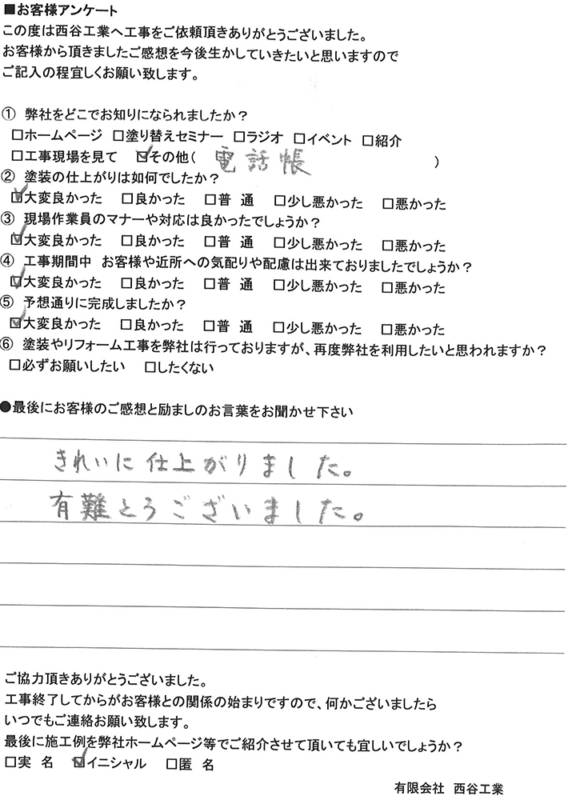 ■お客様アンケート
この度は西谷工業へ工事をご依頼頂きありがとうございました。
お客様から頂きましたご感想を今後生かしていきたいと思いますので
ご記入の程宜しくお願い致します。
① 弊社をどこでお知りになられましたか？
□ホームページ □塗り替えセミナー □ラジオ □イベント □紹介
□工事現場を見て ☑その他( 電話帳 )
② 塗装の仕上がりは如何でしたか？
☑大変良かった □良かった □普 通 □少し悪かった □悪かった
③ 現場作業員のマナーや対応は良かったでしょうか？
☑大変良かった □良かった □普 通 □少し悪かった □悪かった
④ 工事期間中 お客様や近所への気配りや配慮は出来ておりましたでしょうか？
☑大変良かった □良かった □普 通 □少し悪かった □悪かった
⑤ 予想通りに完成しましたか？
☑大変良かった □良かった □普 通 □少し悪かった □悪かった
⑥ 塗装やリフォーム工事を弊社は行っておりますが、再度弊社を利用したいと思われますか？
□必ずお願いしたい □したくない
●最後にお客様のご感想と励ましのお言葉をお聞かせ下さい
きれいに仕上がりました。
有難とうございました。
ご協力頂きありがとうございました。
工事終了してからがお客様との関係の始まりですので、何かございましたら
いつでもご連絡お願い致します。
最後に施工例を弊社ホームページ等でご紹介させて頂いても宜しいでしょうか？
□実 名 ☑イニシャル □匿 名
有限会社 西谷工業